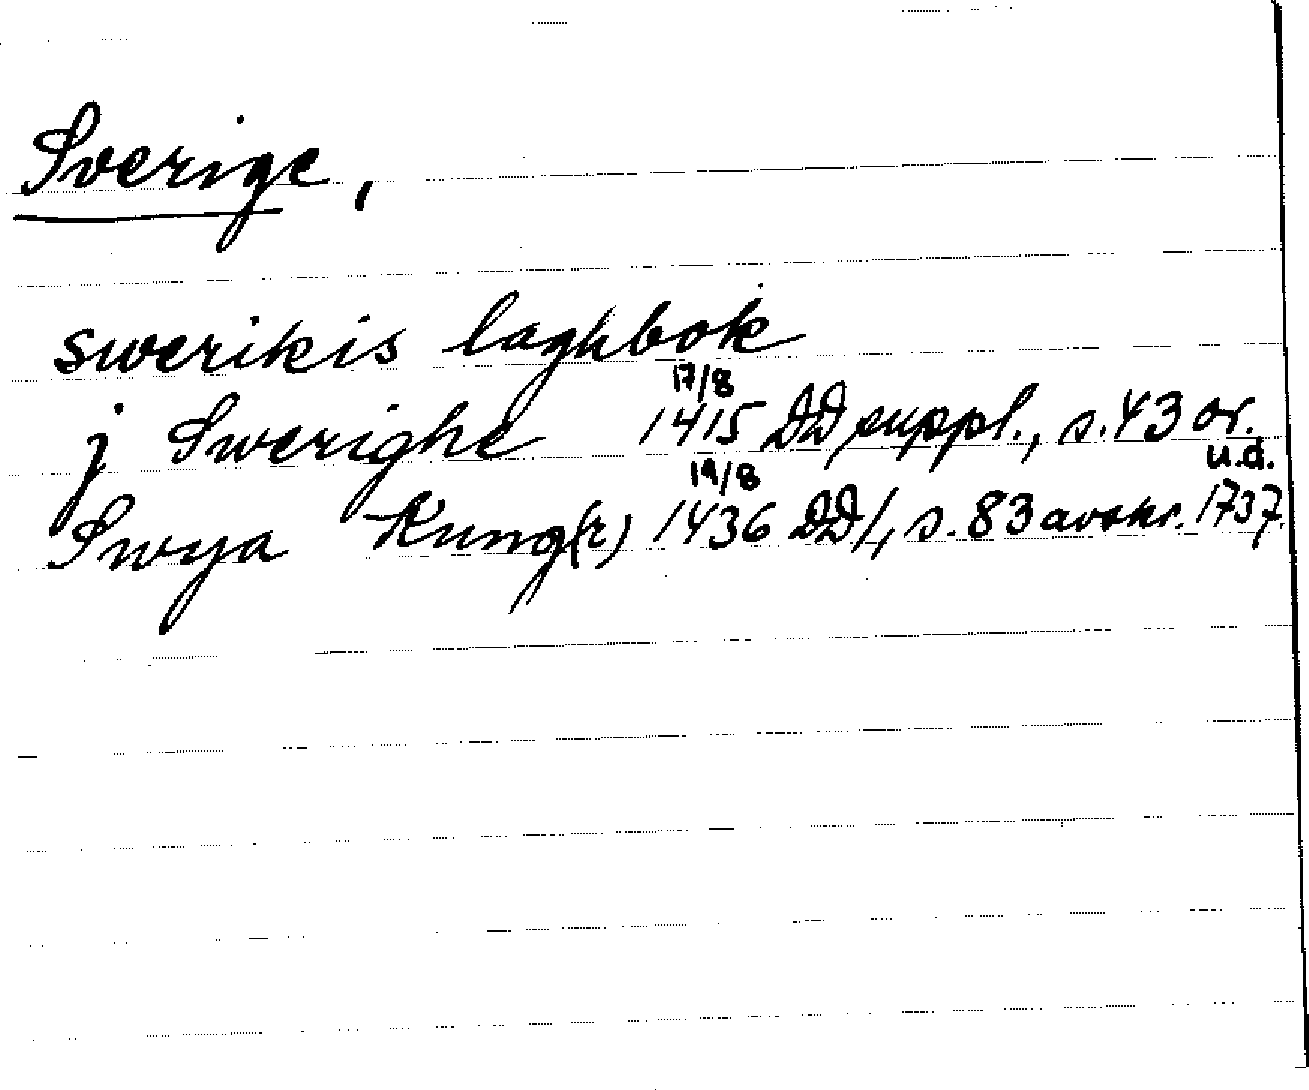 Sverige,
swerikis laghbok
17/8
j Swerighe 1415 DD suppl., s. 43 or.
19/8 u.d.
Swya Kung(r) 1436 DD 1, s. 83 avskr. 1737